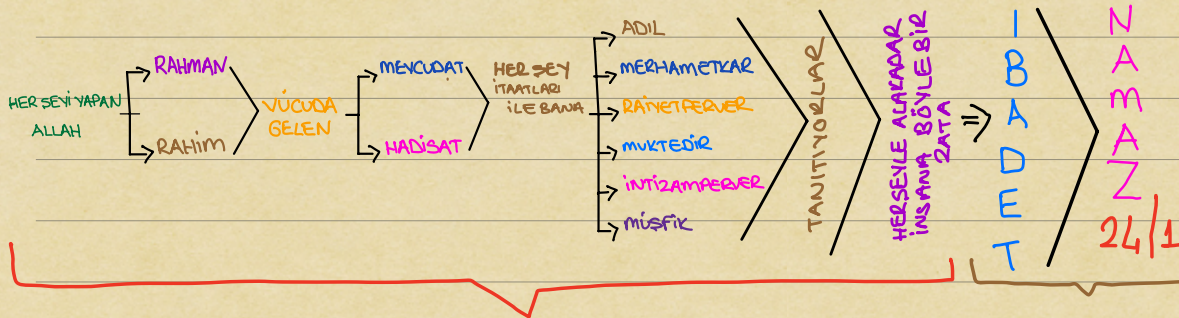 HER ŞEYİ YAPAN
ALLAH
RAHMAN
RAHİM
VÜCUDA
GELEN
MEVCUDAT
HADİSAT
HER ŞEY
İTAATLARI
İLE BANA
ADIL
MERHAMETKAR
RAİYETPERVER
MUKTEDİR
İNTİZAMPERVER
MÜŞFİK
TANITIYORLAR
HERŞEYLE ALAKADAR
İNSANA BÖYLE BİR
ZATA
=>
IBADET
NAMAZ
24/1